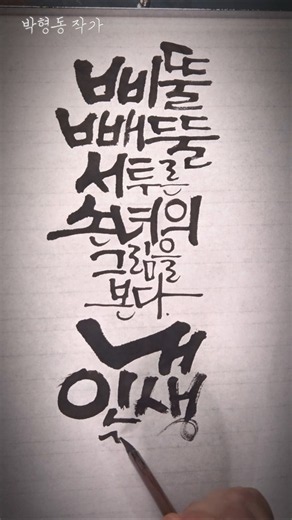 박형동 작가
삐뚤
빼뚤
서투른
손녀의
그림을
본다.
내
인생